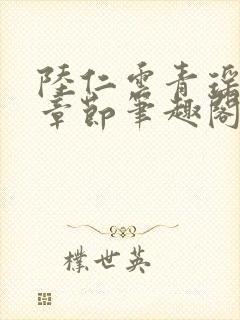 陸仁雲青瑶
章節筆趣閣
樸世英